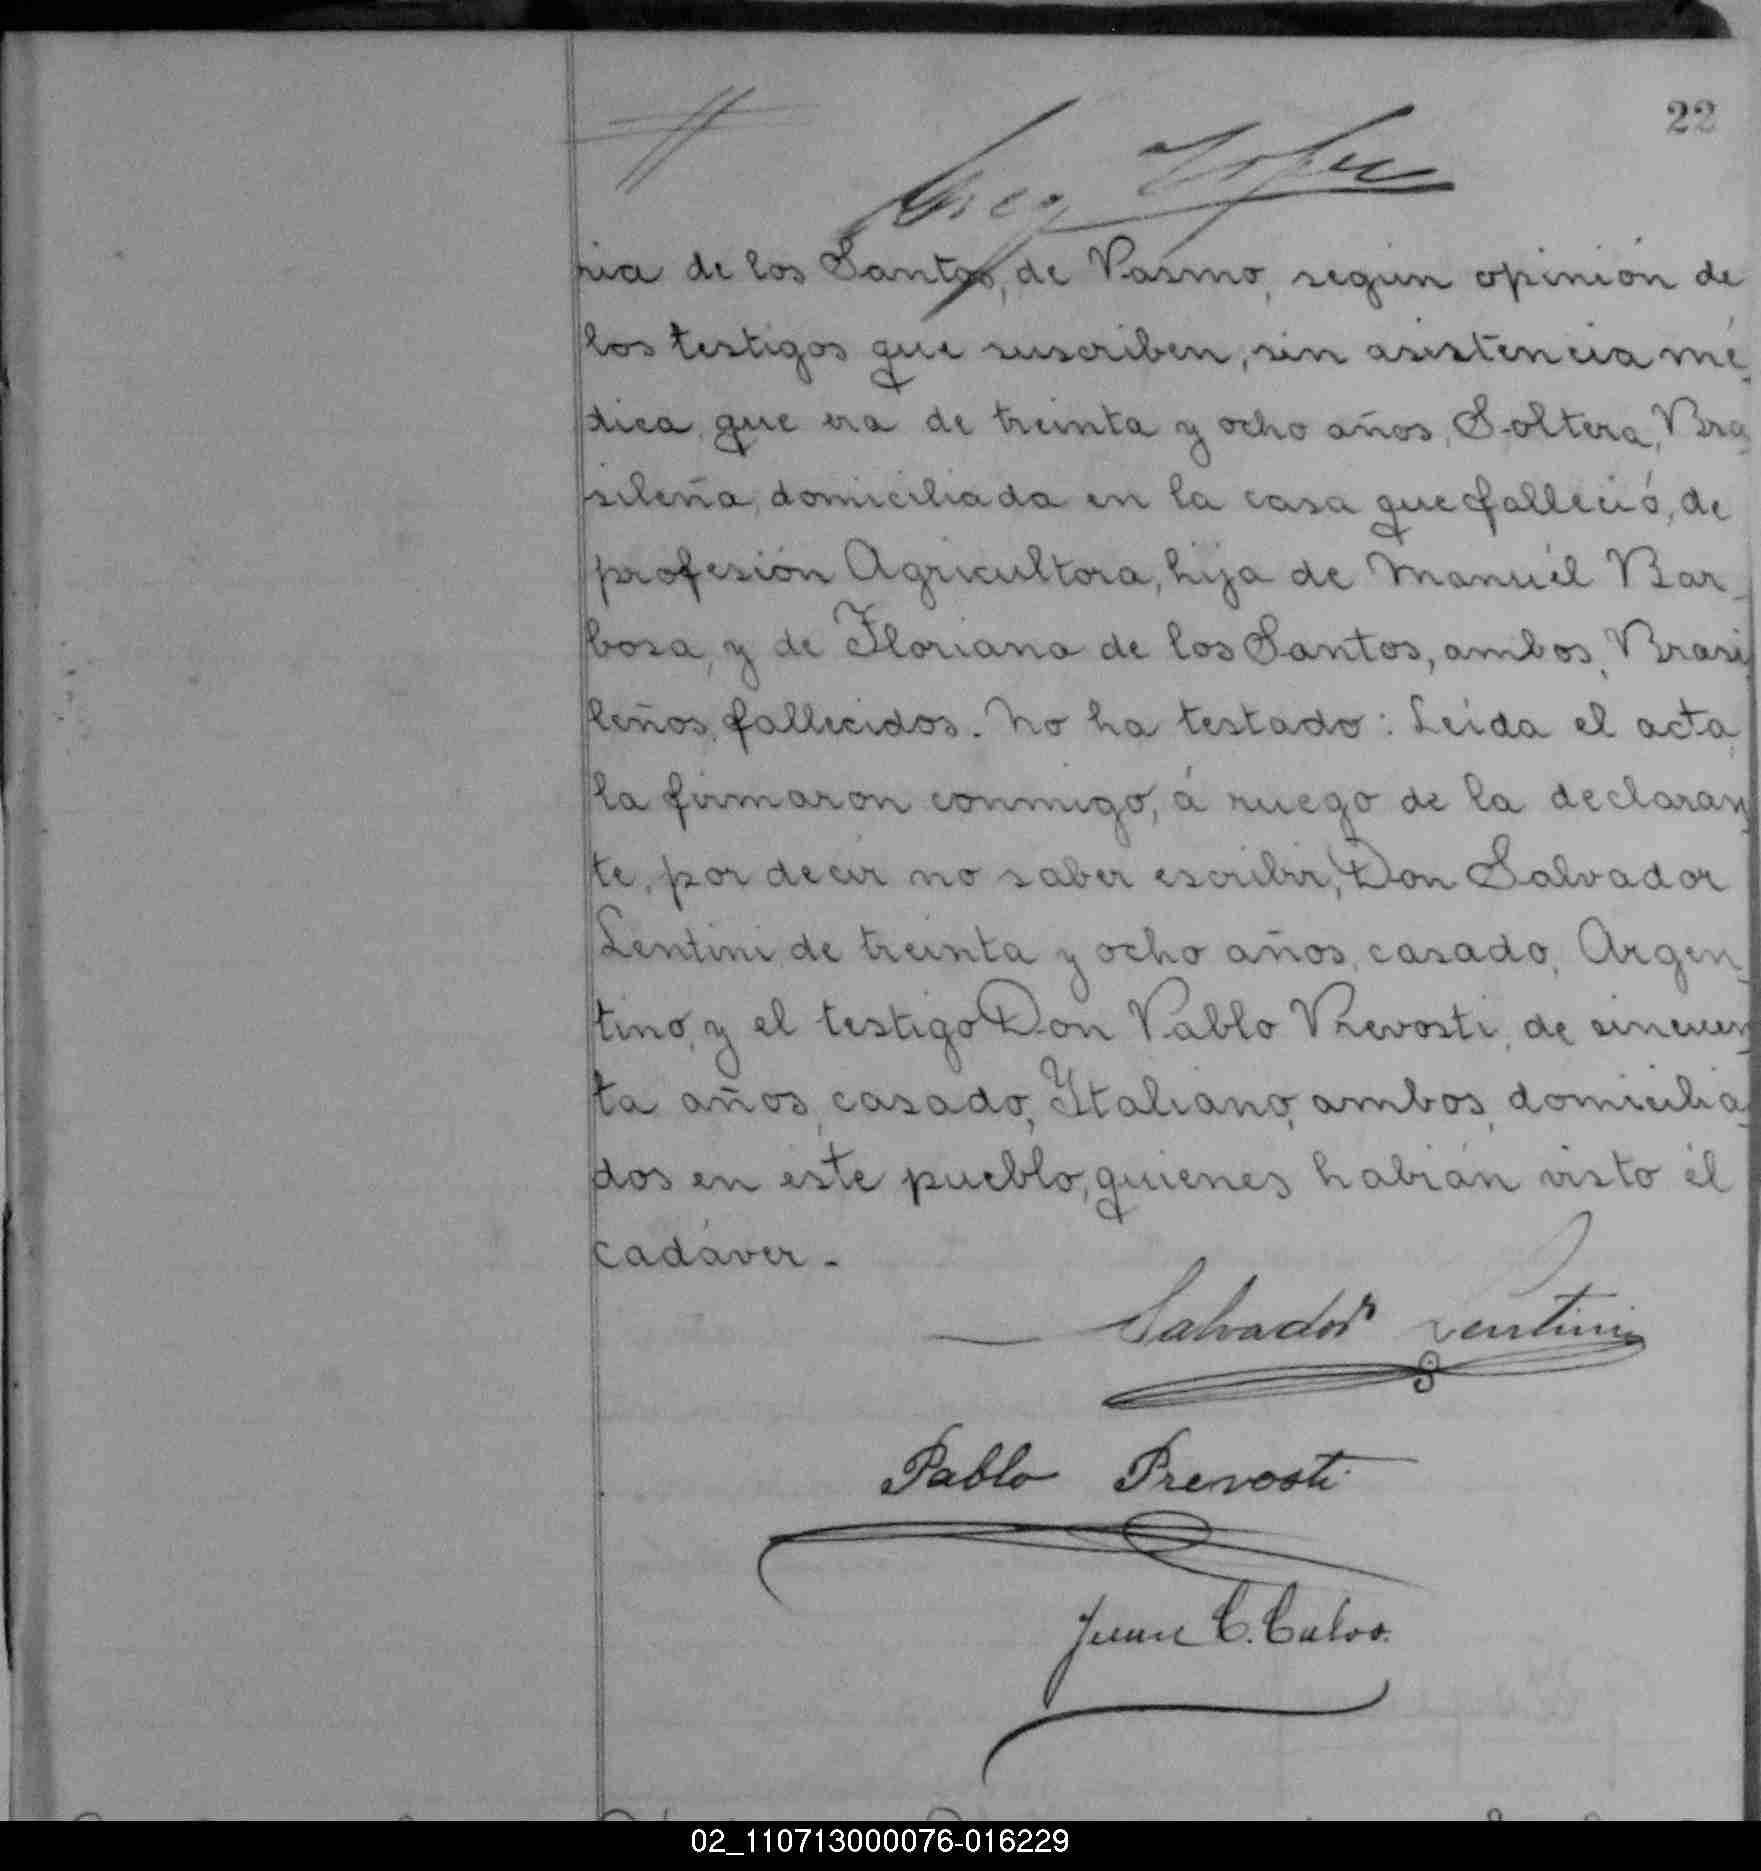 22
ria de los Santos, de Pasmo, según opinión de
los testigos que suscriben, sin asistencia mé-
dica, que era de treinta y ocho años, Soltera, Bra
sileña, domiciliada en la casa que falleció, de
profesión Agricultora, hija de Manuél Bar-
bosa, y de Floriana de los Santos, ambos, Brasi
leños, fallecidos. No ha testado: Leída el acta,
la firmaron conmigo, á ruego de la declaran
te, por decir no saber escribir, Don Salvador
Lentini, de treinta y ocho años, casado, Argen-
tino, y el testigo Don Pablo Prevosti, de sincuen
ta años, casado, Italiano, ambos, domicilia
dos en éste pueblo, quienes habián visto él
cadáver.-
Salvador Lentini
Pablo Prevosti
Juan C. Calvo.
02_110713000076-016229